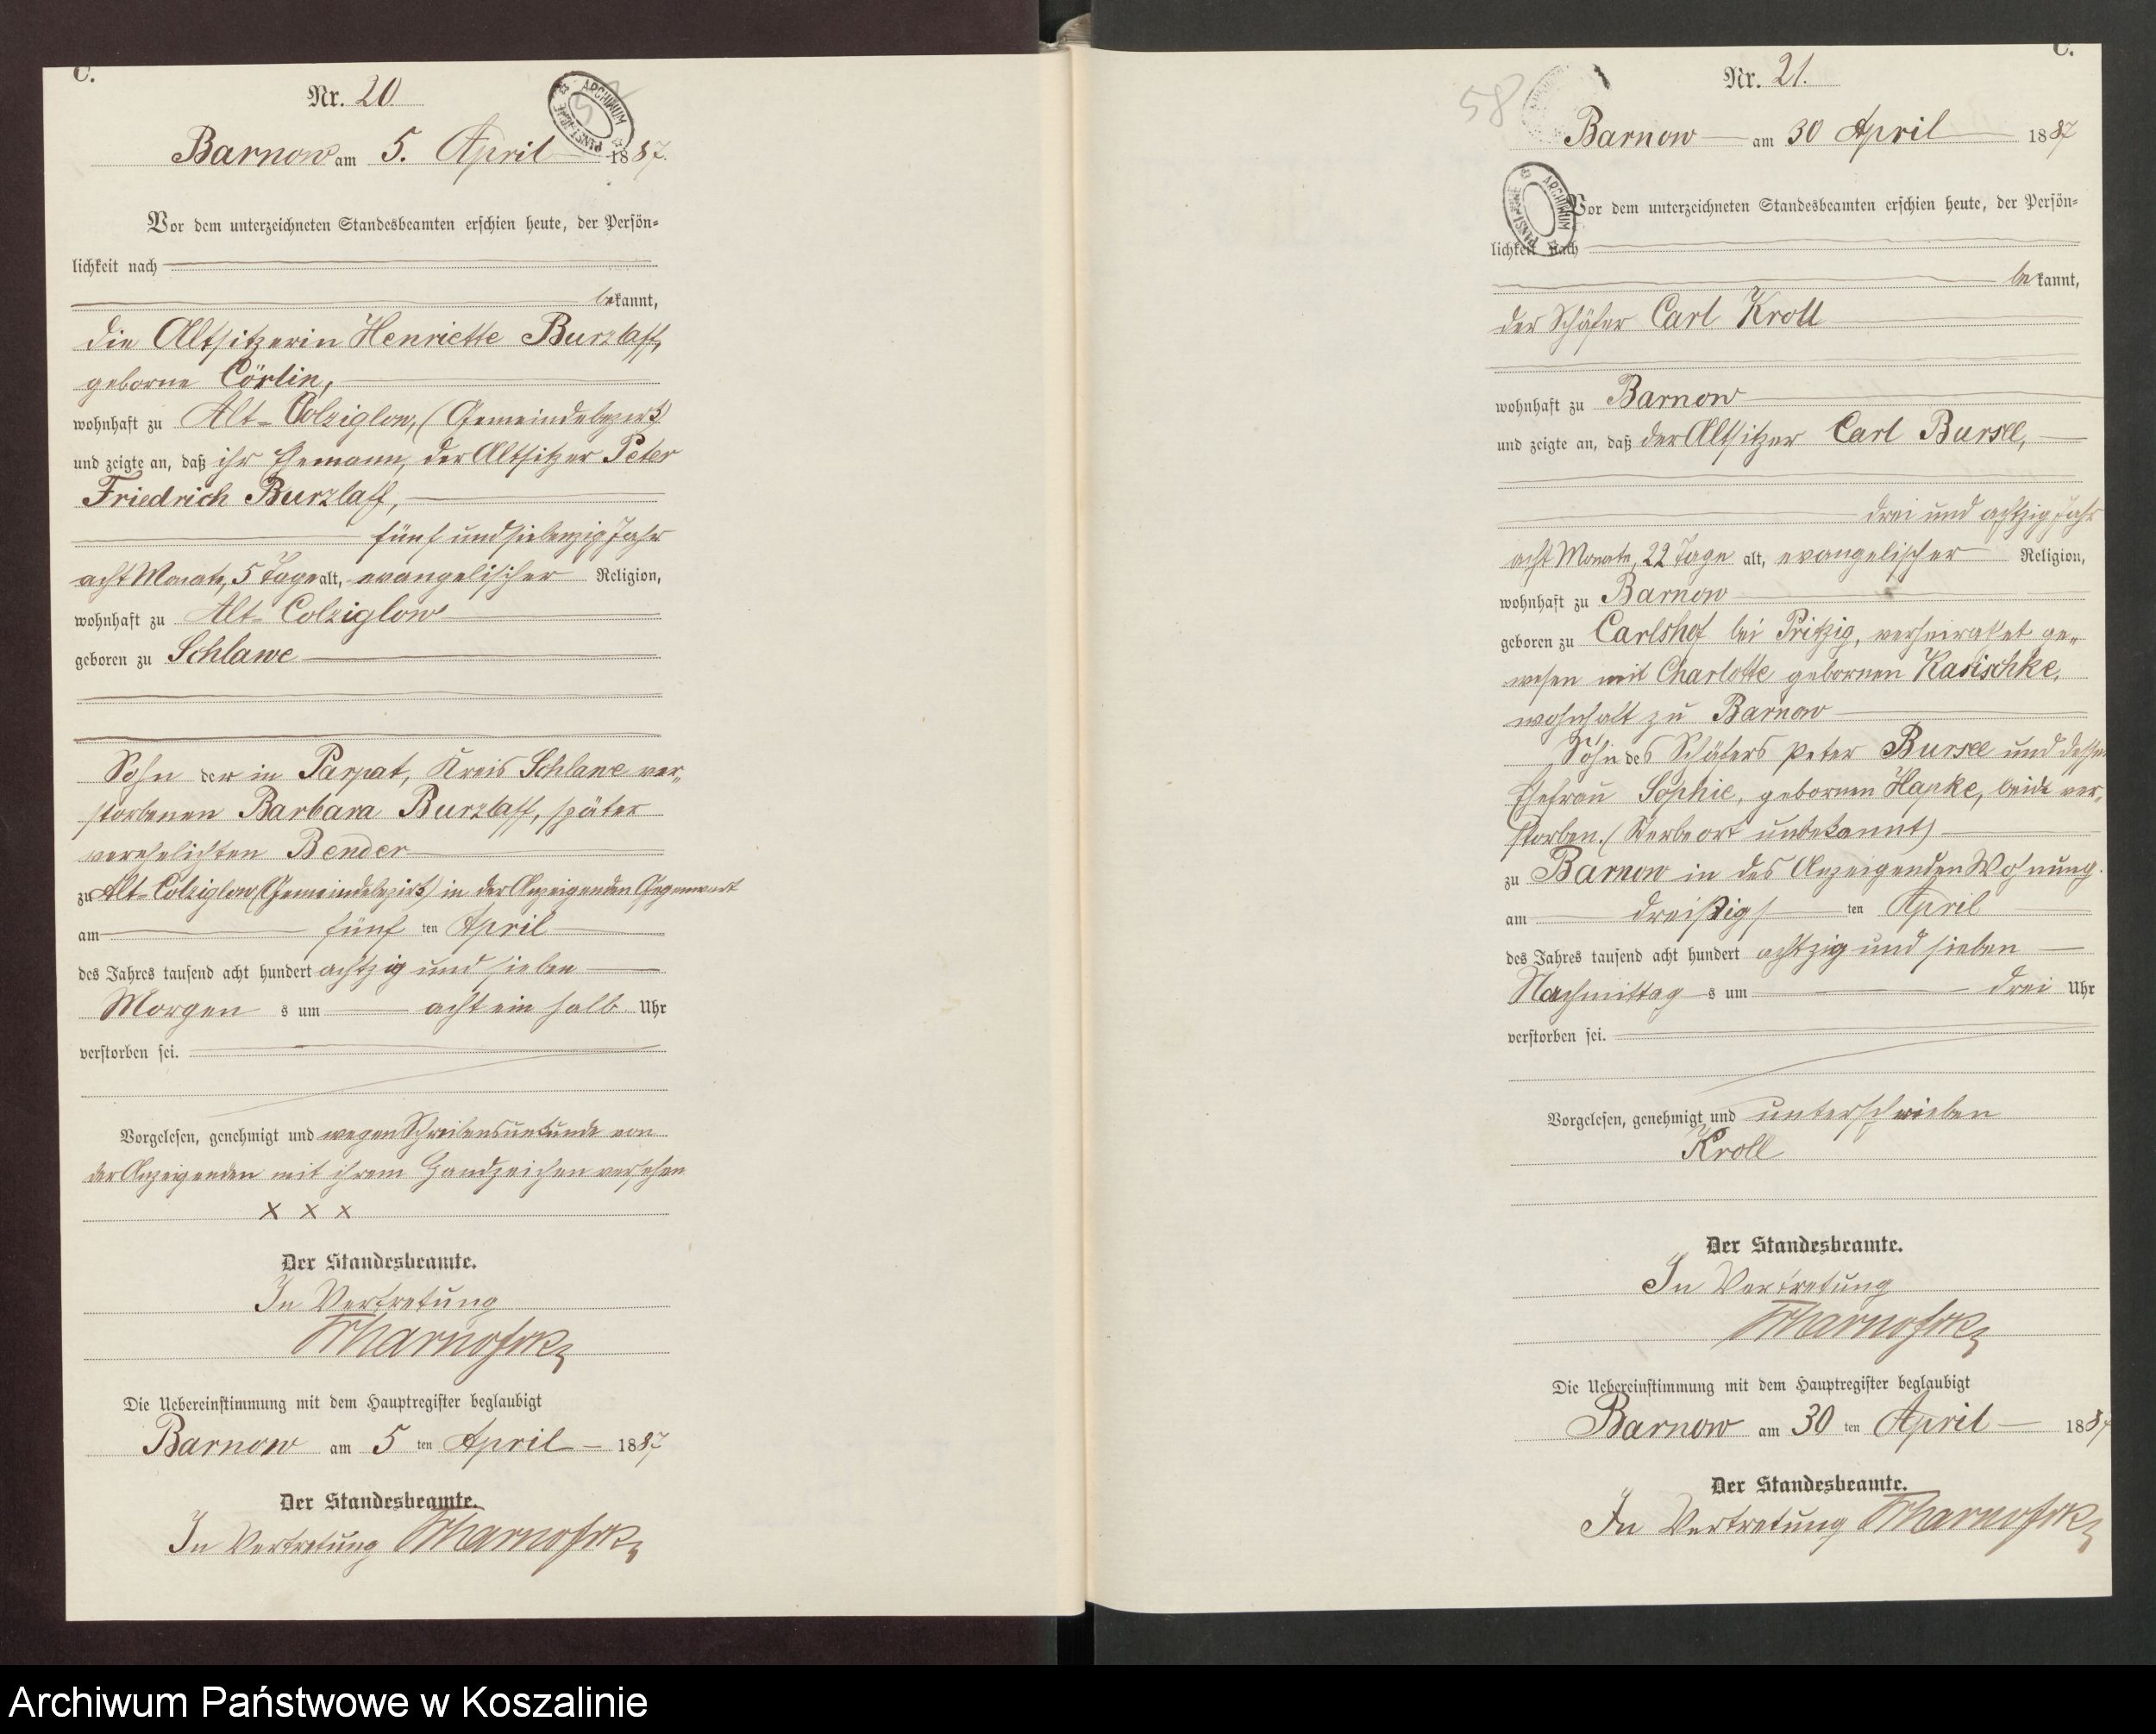 C.
Nr. 20
Barnow am 5. April 1887.
Vor dem unterzeichneten Standesbeamten erschien heute, der Persön-
lichkeit nach
bekannt,
die Altsitzerin Henriette Burzlaff,
geborne Cörlin,
wohnhaft zu Alt-Colziglow, (Gemeindebezirk)
und zeigte an, daß ihr Ehemann, der Altsitzer Peter
Friedrich Burzlaff,
fünf und siebenzig Jahr
acht Monate, 5 Tage alt, evangelischer Religion,
wohnhaft zu Alt-Colziglow
geboren zu Schlawe
Sohn der in Parpat, Kreis Schlawe ver-
storbenen Barbara Burzlaff, später
verehelichten Bender
zu Alt-Colziglow (Gemeindebezirk) in der Anzeigenden Gegenwart
am fünf ten April
des Jahres tausend acht hundert achtzig und sieben
Morgen s um acht ein halb Uhr
verstorben sei.
Vorgelesen, genehmigt und wegen Schreibensunkunde von
der Anzeigenden mit ihrem Handzeichen versehen
x x x
Der Standesbeamte.
In Vertretung
Die Uebereinstimmung mit dem Hauptregister beglaubigt
Barnow am 5 ten April 1887
Der Standesbeamte.
In Vertretung
C.
58
Nr. 21.
Barnow am 30 April 1887
ARCHIWUM PAŃSTWOWE
Vor dem unterzeichneten Standesbeamten erschien heute, der Persön-
lichkeit nach
bekannt,
der Schäfer Carl Kroll
wohnhaft zu Barnow
und zeigte an, daß der Altsitzer Carl Bursee,
drei und achtzig Jahr
acht Monate, 22 Tage alt, evangelischer Religion,
wohnhaft zu Barnow
geboren zu Carlshof bei Pritzig, verheirathet ge-
wesen mit Charlotte gebornen Kasischke,
wohnhaft zu Barnow
Sohn des Schäfers Peter Bursee und dessen
Ehefrau Sophie, gebornen Hapke, beide ver-
storben. (Sterbeort unbekannt)
zu Barnow in des Anzeigenden Wohnung
am dreißigs ten April
des Jahres tausend acht hundert achtzig und sieben
Nachmittag s um drei Uhr
verstorben sei.
Vorgelesen, genehmigt und unterschrieben
Kroll
Der Standesbeamte.
In Vertretung
Die Uebereinstimmung mit dem Hauptregister beglaubigt
Barnow am 30 ten April 1887
Der Standesbeamte.
In Vertretung
Archiwum Państwowe w Koszalinie